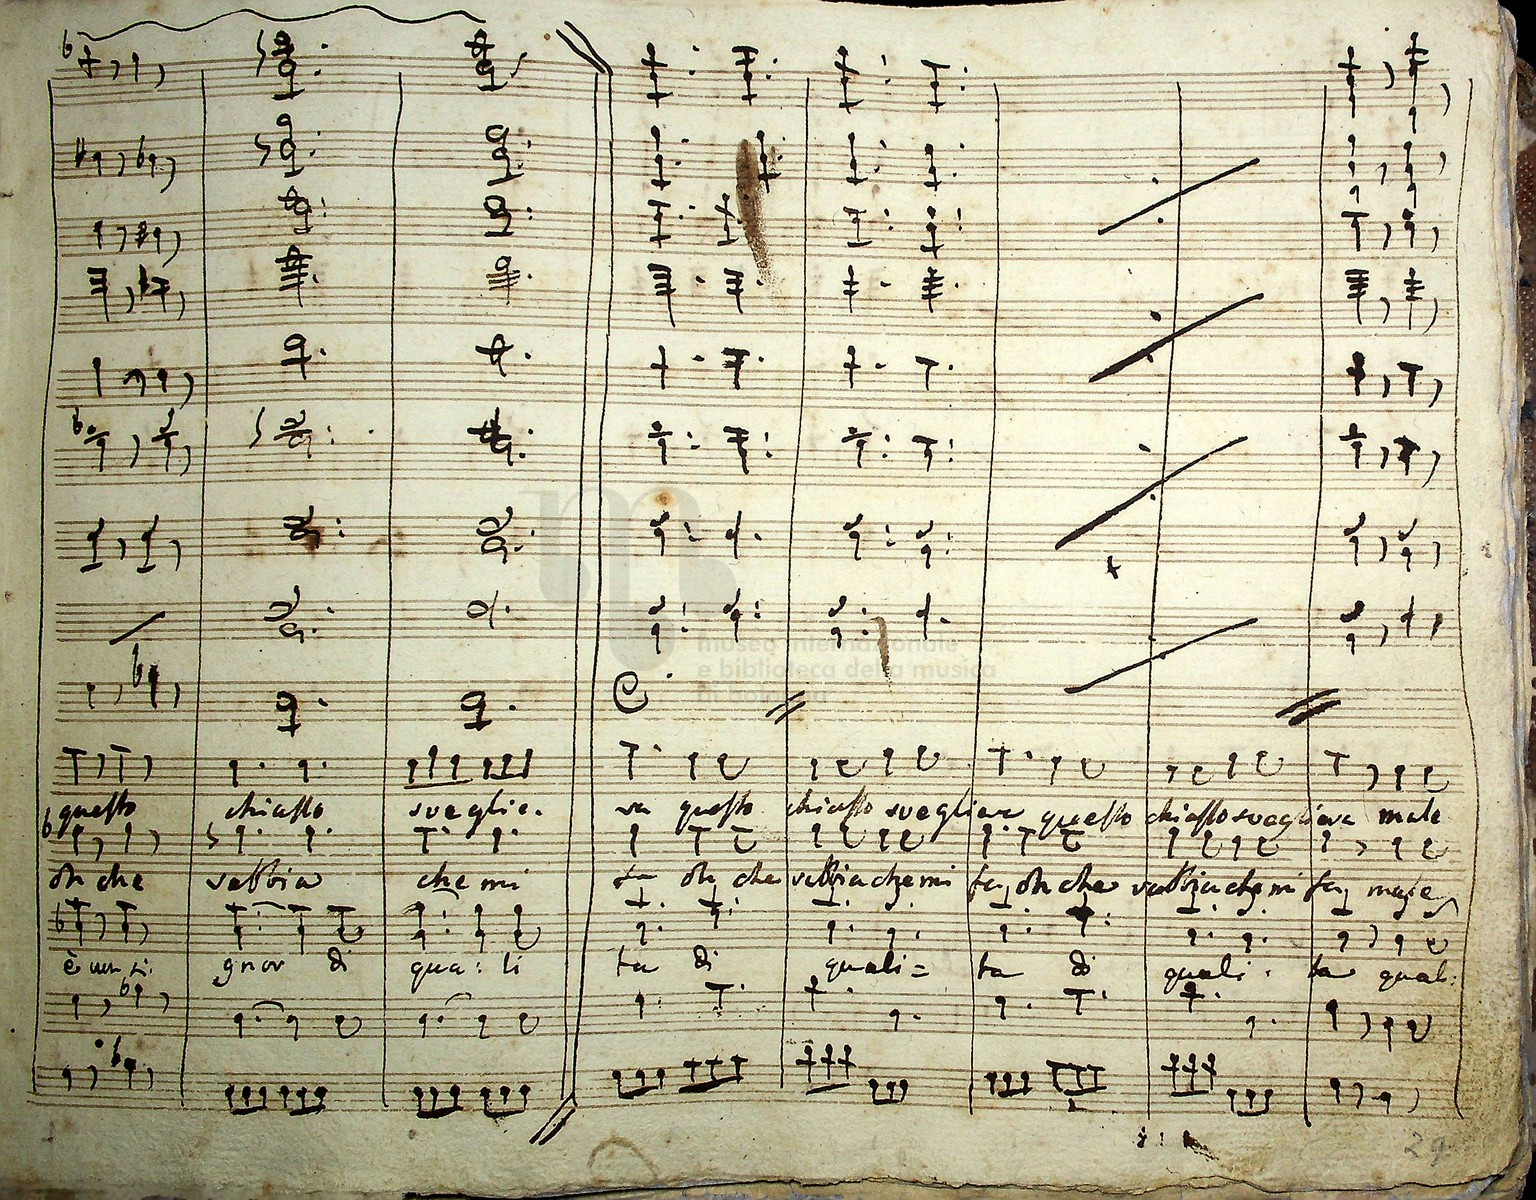 museo internazionale
e biblioteca della musica
di bologna
questo chiasso sveglie. va questo chiasso svegliava questo chiasso svegliava male
oh che rabbia che mi fa oh che rabbia che mi fa, oh che rabbia che mi fa, male
è un si: gnor di qua: li ta di quali = ta di quali. ta qual:
29